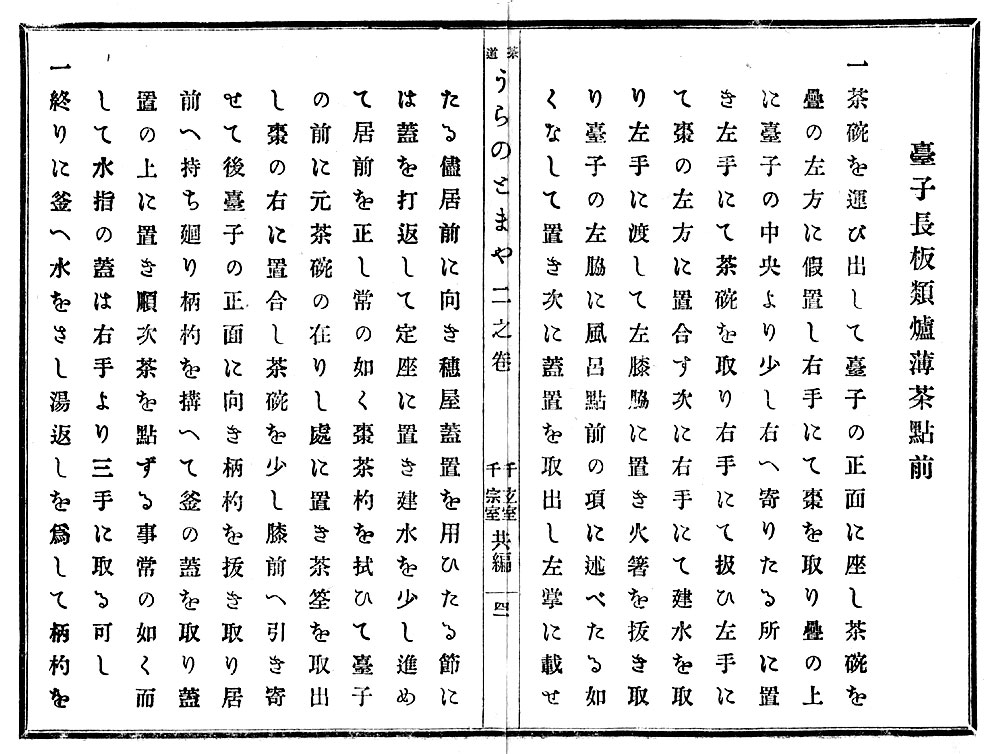 臺子長板類爐薄茶點前
一茶碗を運び出して臺子の正面に座し茶碗を
疊の左方に假置し右手にて棗を取り疊の上
に臺子の中央より少し右へ寄りたる所に置
き左手にて茶碗を取り右手にて扱ひ左手に
て棗の左方に置合ず次に右手にて建水を取
り左手に渡して左膝脇に置き火箸を抜き取
り臺子の左脇に風呂點前の項に述べたる如
くなして置き次に蓋置を取出し左掌に載せ
茶道
うらのとまや二之卷
千玄室
千宗室
共編
四
たる儘居前に向き穗屋蓋置を用ひたる節に
は蓋を打返して定座に置き建水を少し進め
て居前を正し常の如く棗茶杓を拭ひて臺子
の前に元茶碗の在りし處に置き茶筌を取出
し棗の右に置合し茶碗を少し膝前へ引き寄
せて後臺子の正面に向き柄杓を抜き取り居
前へ持ち廻り柄杓を搆へて釜の蓋を取り蓋
置の上に置き順次茶を點ずる事常の如く而
して水指の蓋は右手より三手に取る可し
一終りに釜へ水をさし湯返しを爲して柄杓を